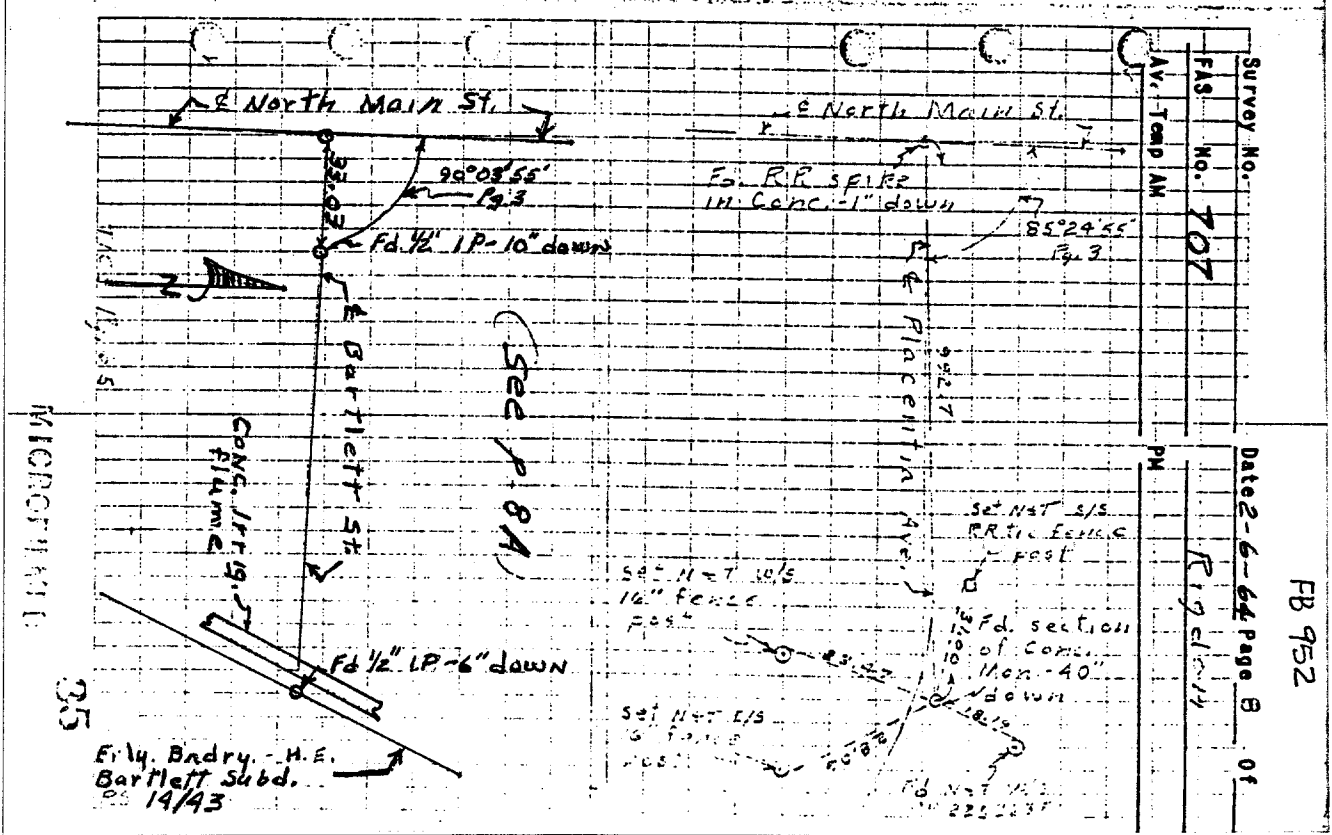 FB 952
Survey No. Date 2-6-64 Page 8 of
FAS No. 707
Av. Temp AM PM
℄ North Main St.
33.03
90°03'55"
Pg. 3
Fd. 1/2" I.P. - 10" down
N
℄ Bartlett St.
(See p. 8A)
Conc. Irrig.
flume
Fd 1/2" I.P. - 6" down
E'ly. Bndry. - H.E.
Bartlett Subd.
14/43
35
MICROFILMED
℄ North Main St.
Fd. R.R. spike
in Conc. - 1" down
85°24'55"
Pg. 3
℄ Placentia Ave.
992.17
Set N&T S/S
RR tie fence
post
Set N&T W/S
fence
post
31.00
Fd. section
of Conc.
Mon. - 40"
down
18.19
Set N&T E/S
fence
post
Fd. N&T